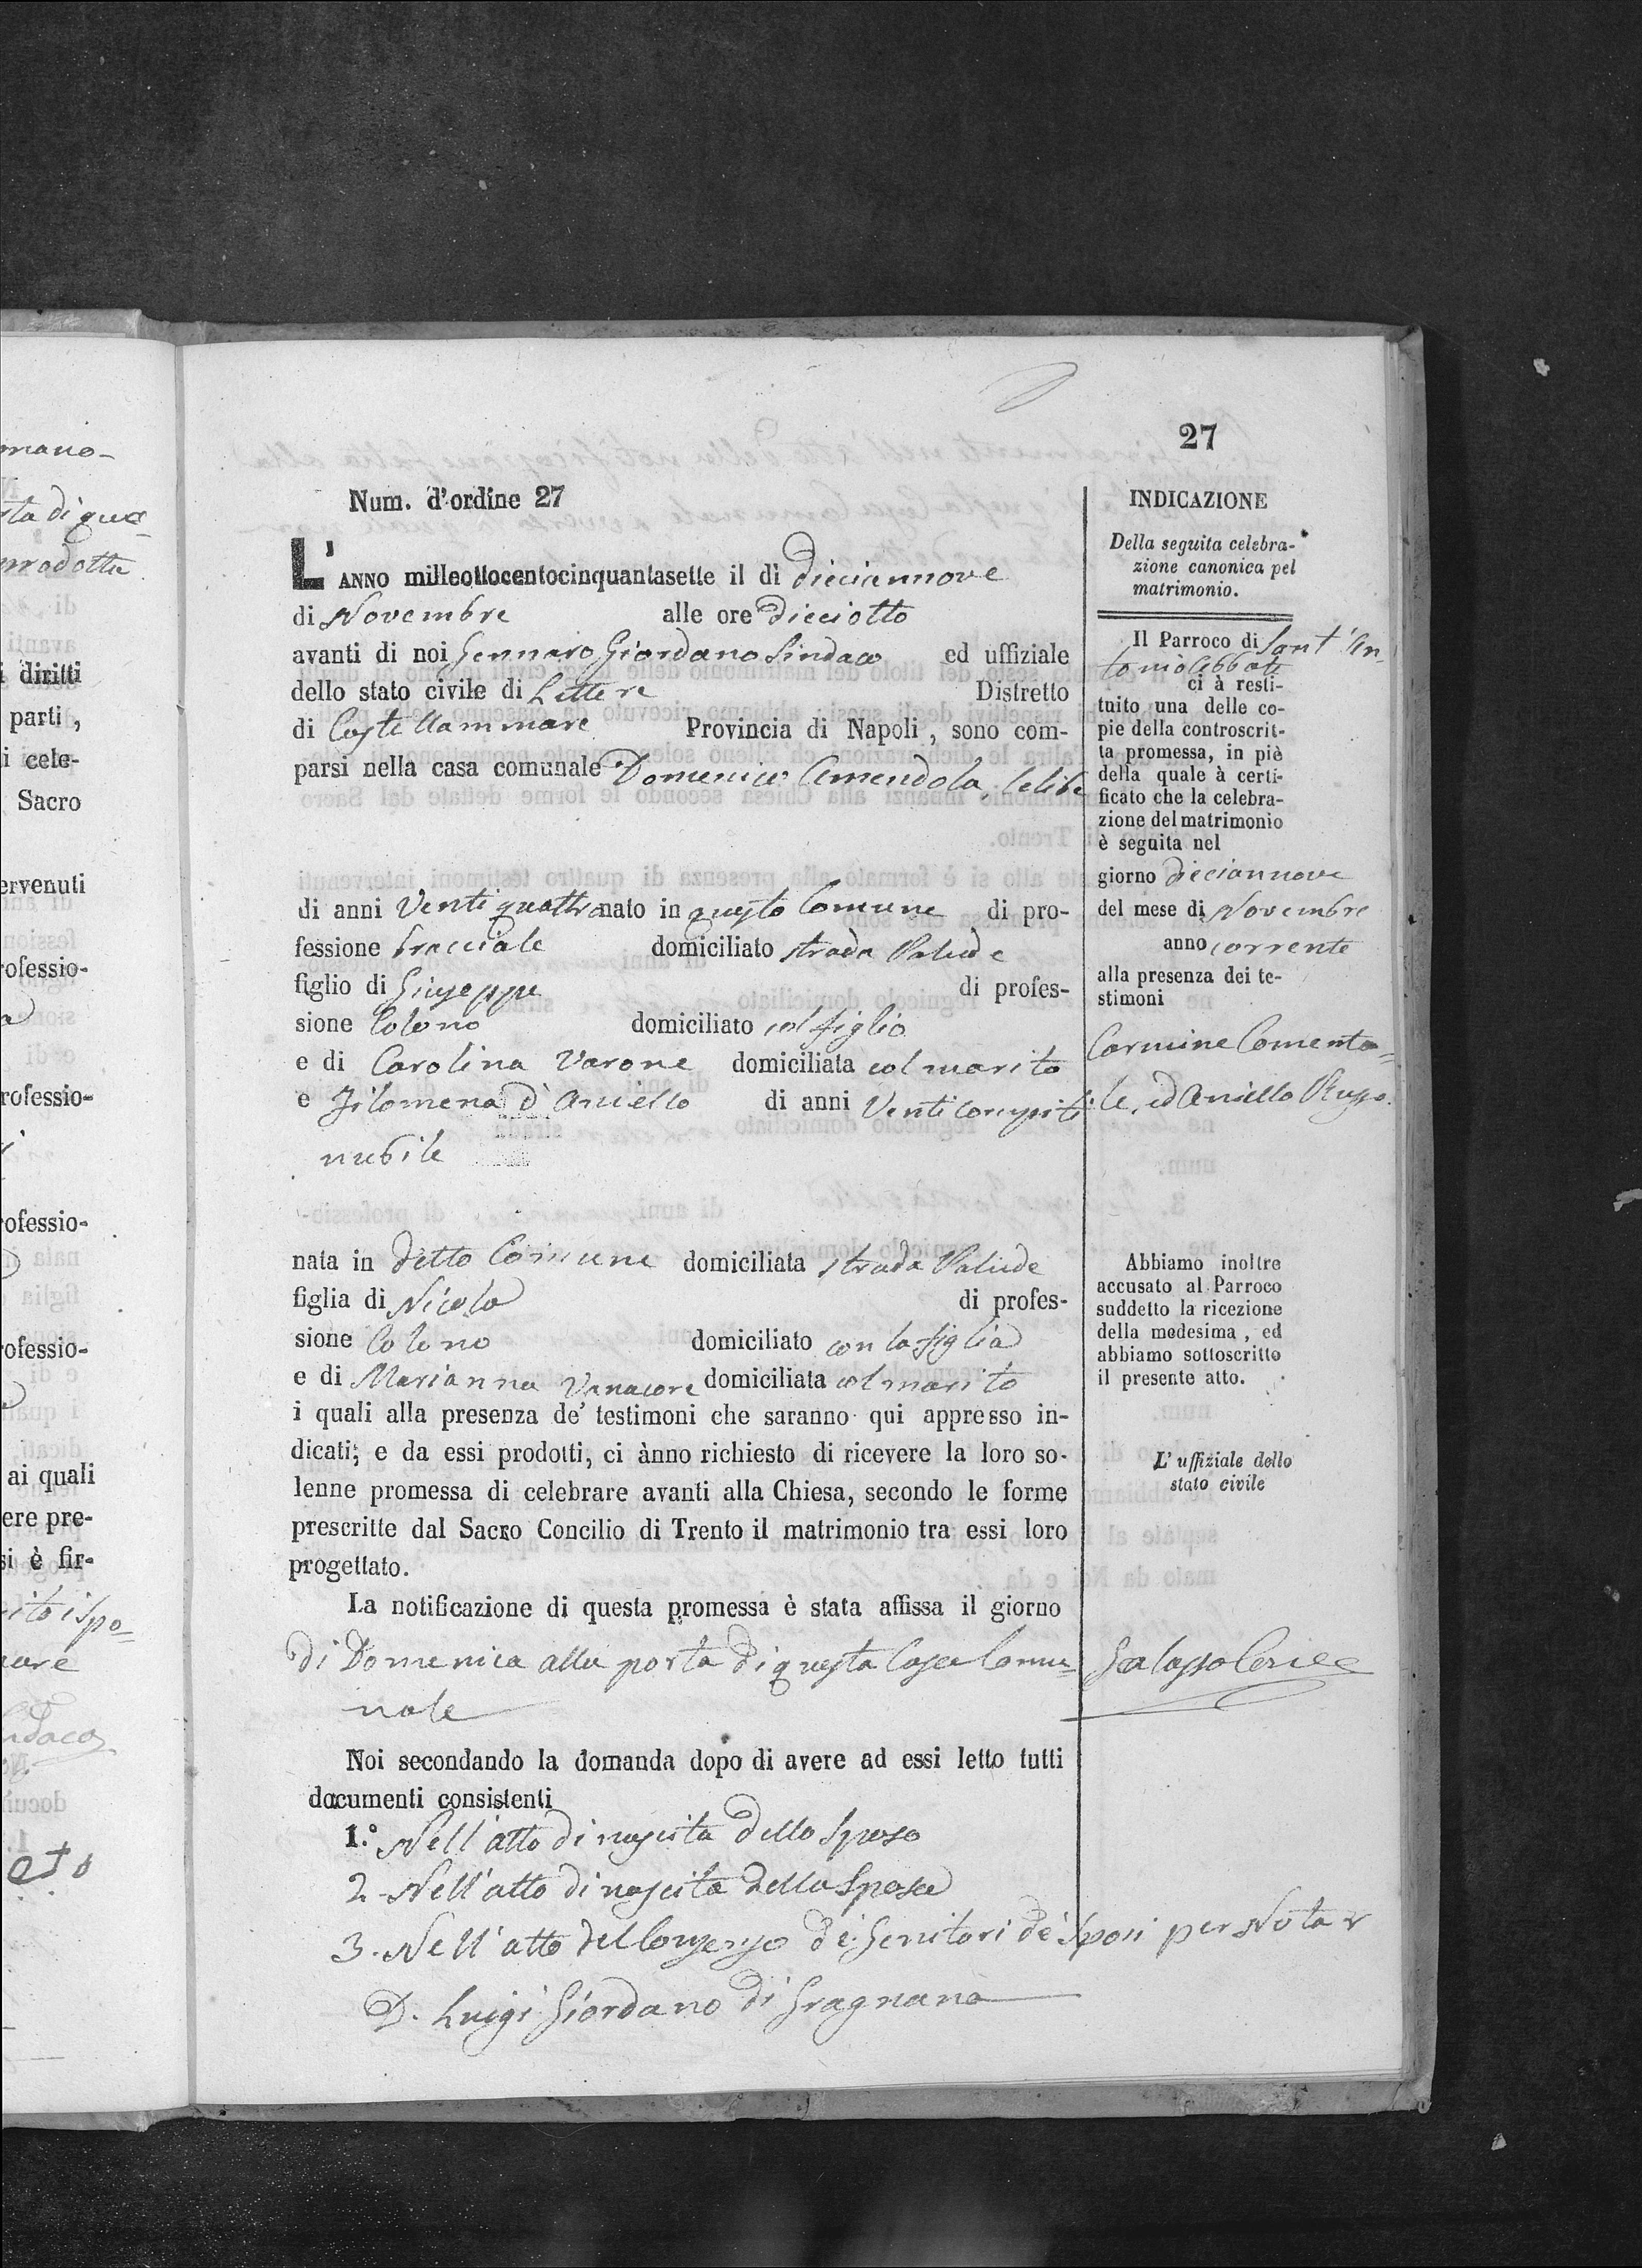 mano-
sta di que
prodotta
i diritti
parti,
i cele-
Sacro
ervenuti
ofessio-
rofessio-
ofessio-
ofessio-
ai quali
ere pre-
si è fir-
27
Num. d'ordine 27
L'ANNO milleottocentocinquantasette il dì diciannove
di Novembre alle ore dieciotto
avanti di noi Gennaro Giordano Sindaco ed uffiziale
dello stato civile di Lettere Distretto
di Castellammare Provincia di Napoli, sono com-
parsi nella casa comunale Domenico Amendola, Celibe
di anni Ventiquattro nato in questo Comune di pro-
fessione bracciale domiciliato strada Palude
figlio di Giuseppe di profes-
sione Colono domiciliato col figlio
e di Carolina Varone domiciliata col marito
e Filomena d'Aniello di anni Venti compiti
nubile
nata in detto Comune domiciliata strada Palude
figlia di Nicola di profes-
sione Colono domiciliato con la figlia
e di Marianna Vanacore domiciliata col marito
i quali alla presenza de' testimoni che saranno qui appresso in-
dicati; e da essi prodotti, ci ànno richiesto di ricevere la loro so-
lenne promessa di celebrare avanti alla Chiesa, secondo le forme
prescritte dal Sacro Concilio di Trento il matrimonio tra essi loro
progettato.
La notificazione di questa promessa è stata affissa il giorno
di Domenica alla porta di questa Casa Comu=
nale
Noi secondando la domanda dopo di avere ad essi letto tutti
documenti consistenti
1.° Nell'atto di nascita dello Sposo
2. Nell'atto di nascita della Sposa
3. Nell'atto del Consenso de' Genitori de' Sposi per Notar
D. Luigi Giordano di Gragnano
INDICAZIONE
Della seguita celebra-
zione canonica pel
matrimonio.
Il Parroco di Sant'An-
tonio Abbate
ci à resti-
tuito una delle co-
pie della controscrit-
ta promessa, in piè
della quale à certi-
ficato che la celebra-
zione del matrimonio
è seguita nel
giorno diciannove
del mese di Novembre
anno corrente
alla presenza dei te-
stimoni
Carmine Comenta=
le, ed Aniello Russo.
Abbiamo inoltre
accusato al Parroco
suddetto la ricezione
della medesima, ed
abbiamo sottoscritto
il presente atto.
L'uffiziale dello
stato civile